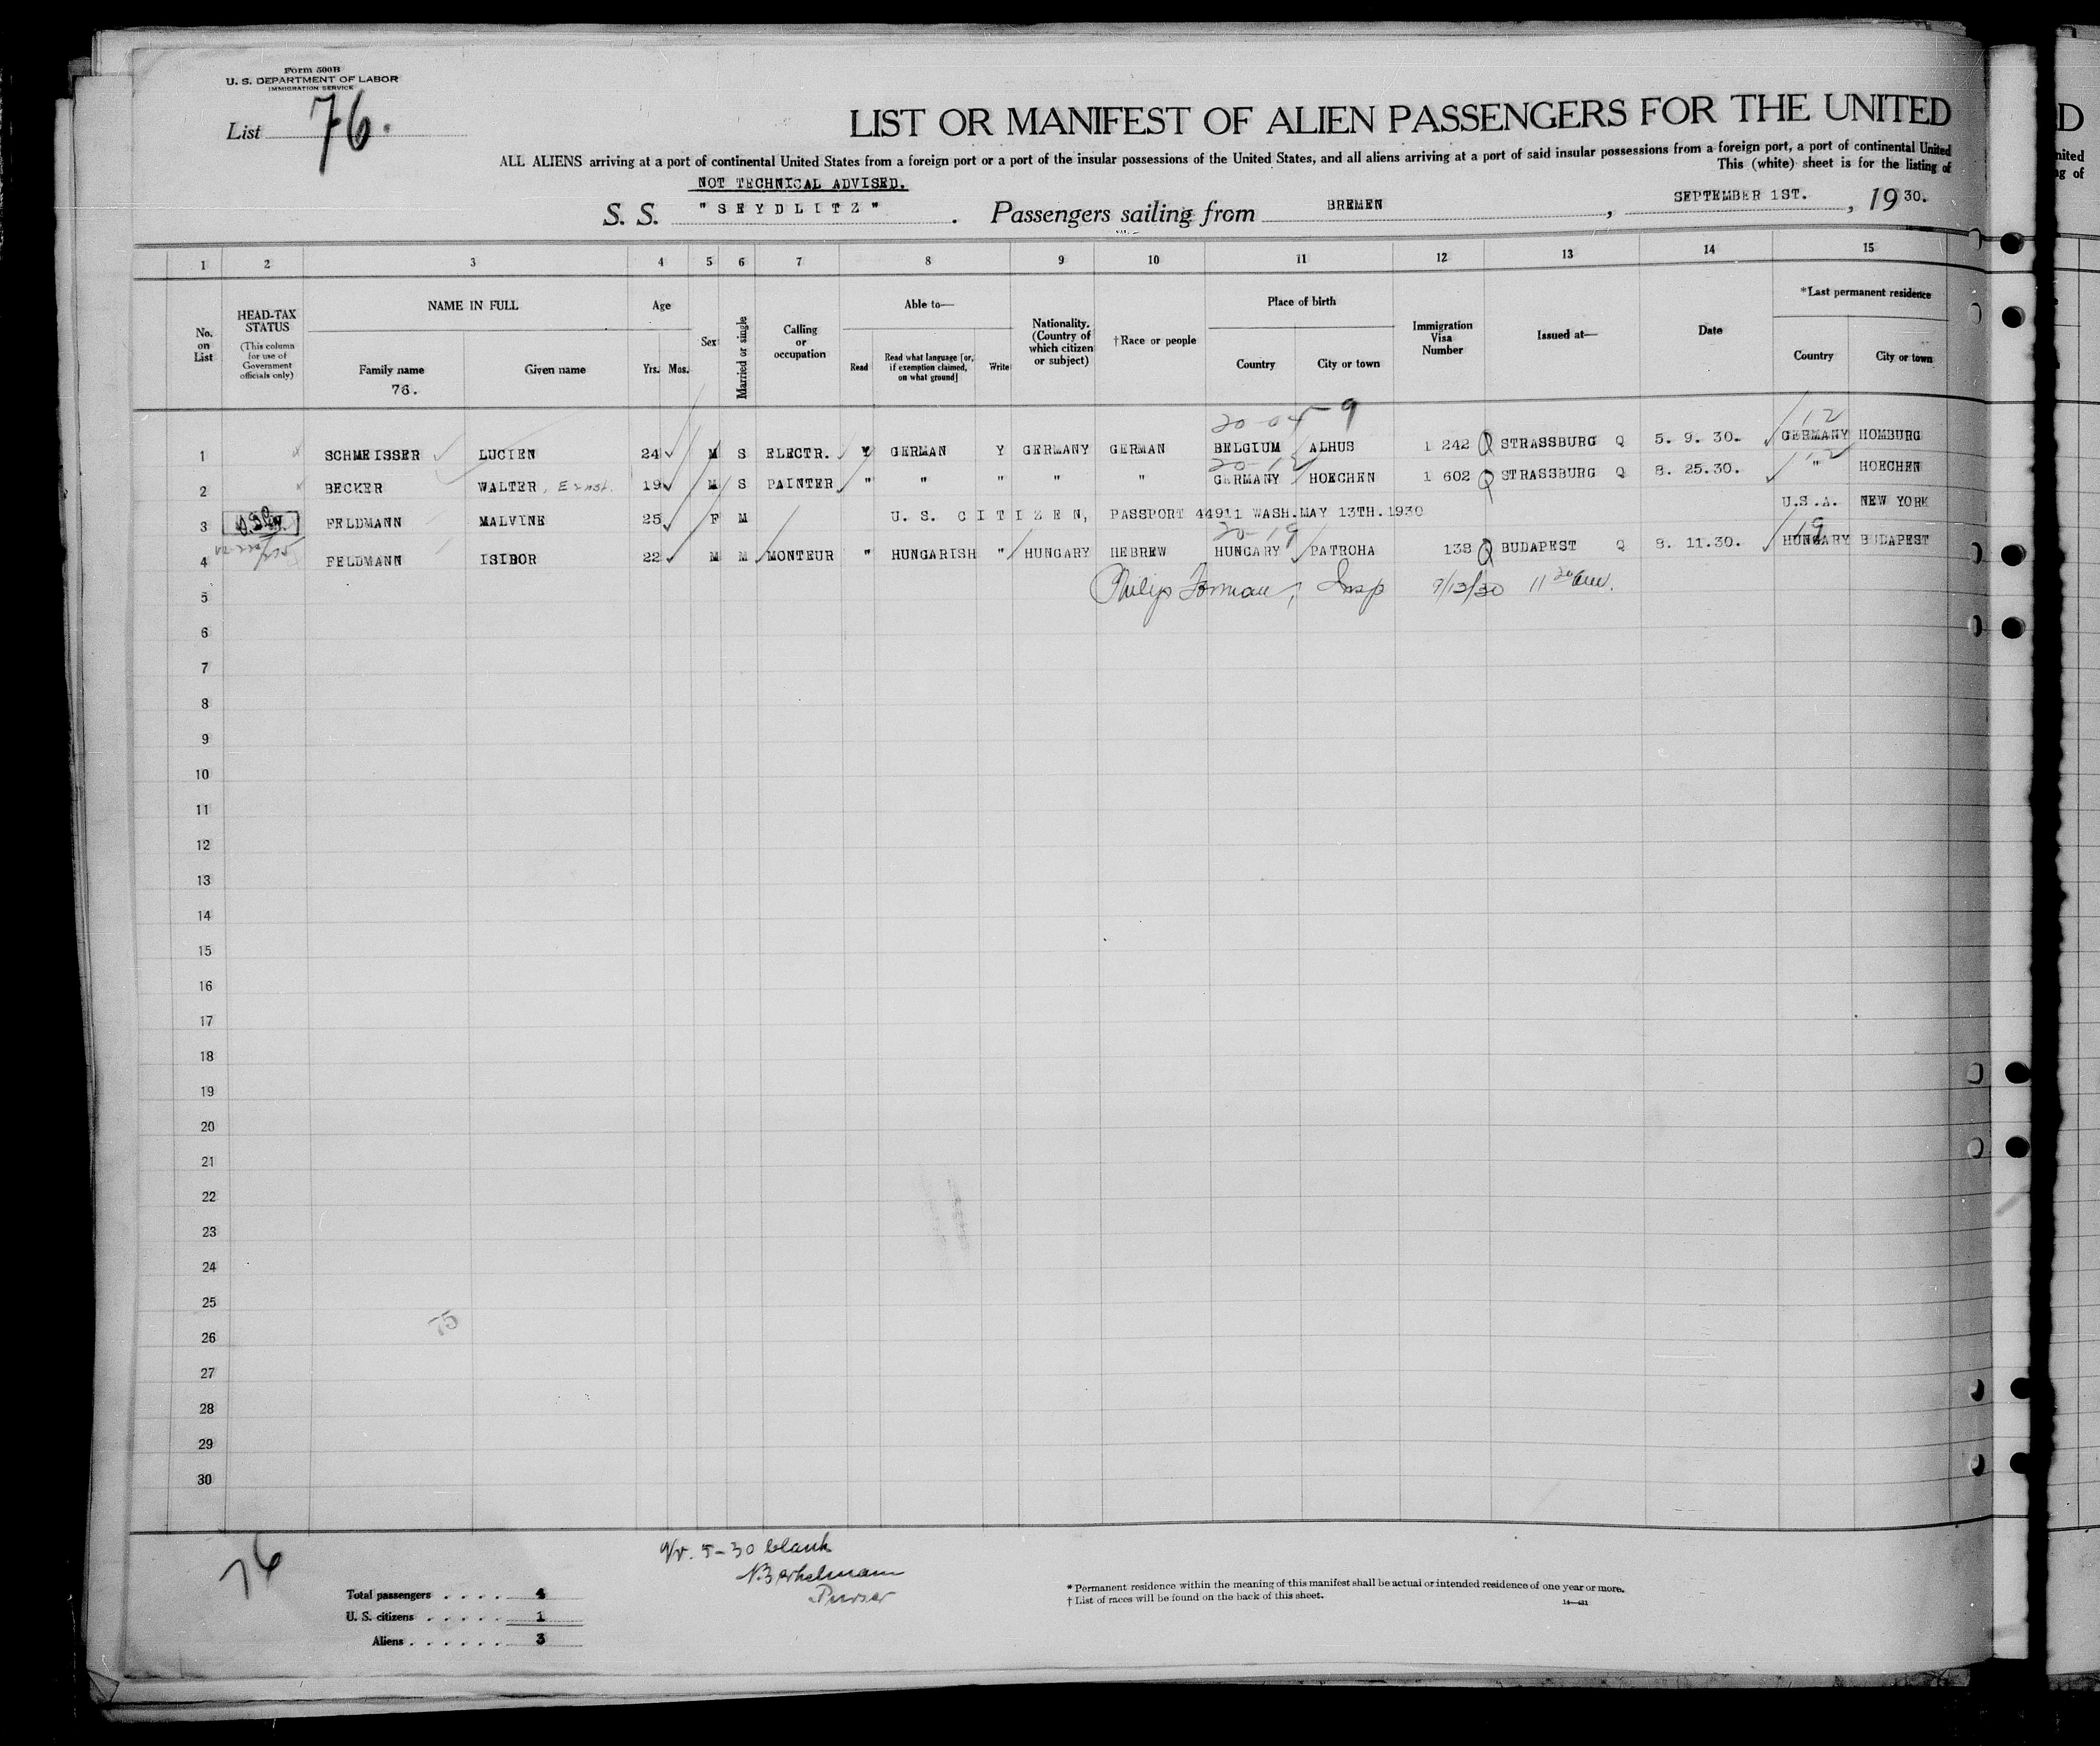 Form 500B
U. S. DEPARTMENT OF LABOR
IMMIGRATION SERVICE
List 76.
LIST OR MANIFEST OF ALIEN PASSENGERS FOR THE UNITED
ALL ALIENS arriving at a port of continental United States from a foreign port or a port of the insular possessions of the United States, and all aliens arriving at a port of said insular possessions from a foreign port, a port of continental United
This (white) sheet is for the listing of
NOT TECHNICAL ADVISED.
S. S. "SEYDLITZ". Passengers sailing from BREMEN, SEPTEMBER 1ST., 1930.
1 2 3 4 5 6 7 8 9 10 11 12 13 14 15
No. on List
HEAD-TAX STATUS
(This column for use of Government officials only)
NAME IN FULL
Family name
76.
Given name
Age
Yrs. Mos.
Sex
Married or single
Calling or occupation
Able to—
Read
Read what language [or, if exemption claimed, on what ground]
Write
Nationality. (Country of which citizen or subject)
†Race or people
Place of birth
Country
City or town
Immigration Visa Number
Issued at—
Date
*Last permanent residence
Country
City or town
20-04-9 12
1 SCHMEISSER LUCIEN 24 M S ELECTR. Y GERMAN Y GERMANY GERMAN BELGIUM ALHUS 1 242 Q STRASSBURG Q 5. 9. 30. GERMANY HOMBURG
20-12 12
2 BECKER WALTER, Ernst. 19 M S PAINTER " " " " " GERMANY HOECHEN 1 602 Q STRASSBURG Q 8. 25.30. " HOECHEN
3 FELDMANN MALVINE 25 F M U. S. CITIZEN, PASSPORT 44911 WASH.MAY 13TH.1930 U.S.A. NEW YORK
20-19 19
4 FELDMANN ISIDOR 22 M M MONTEUR " HUNGARISH " HUNGARY HEBREW HUNGARY PATROHA 138 Q BUDAPEST Q 8. 11.30. HUNGARY BUDAPEST
5 Philip Forman, Insp 9/13/30 11 20 am.
6
7
8
9
10
11
12
13
14
15
16
17
18
19
20
21
22
23
24
25
26
75
27
28
29
30
76
5-30 blank
Purser
Total passengers . . . . 4
U. S. citizens . . . . . 1
Aliens . . . . . . 3
* Permanent residence within the meaning of this manifest shall be actual or intended residence of one year or more.
† List of races will be found on the back of this sheet.
D
nited
ng of